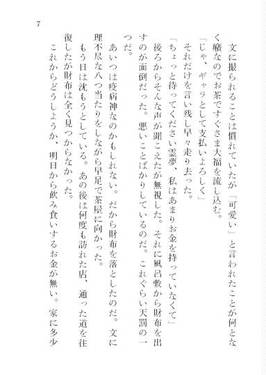 7
文に撮られることは慣れていたが「可愛い」と言われたことが何とな
く癪なのでお茶ですぐさま大福を流し込む。
「じゃ、ギャラとして支払いよろしく」
それだけを言い残し早々走り去った。
「ちょっと待ってください霊夢、私はあまりお金を持っていなくて」
後ろからそんな声が聞こえたが無視した。それに風呂敷から財布を出
すのが面倒だった。悪いことばかりしているのだ。これぐらい天罰の一
あいつは疫病神なのかもしれない。だから財布を落としたのだ。文に
理不尽な八つ当たりをしながら早足で茶屋に向かった。
もう日は沈もうとしている。あの後は何度も訪れた店、通った道を往
復したが財布は全く見つからなかった。
これからどうしようか、明日から飲み食いするお金が無い。家に多少